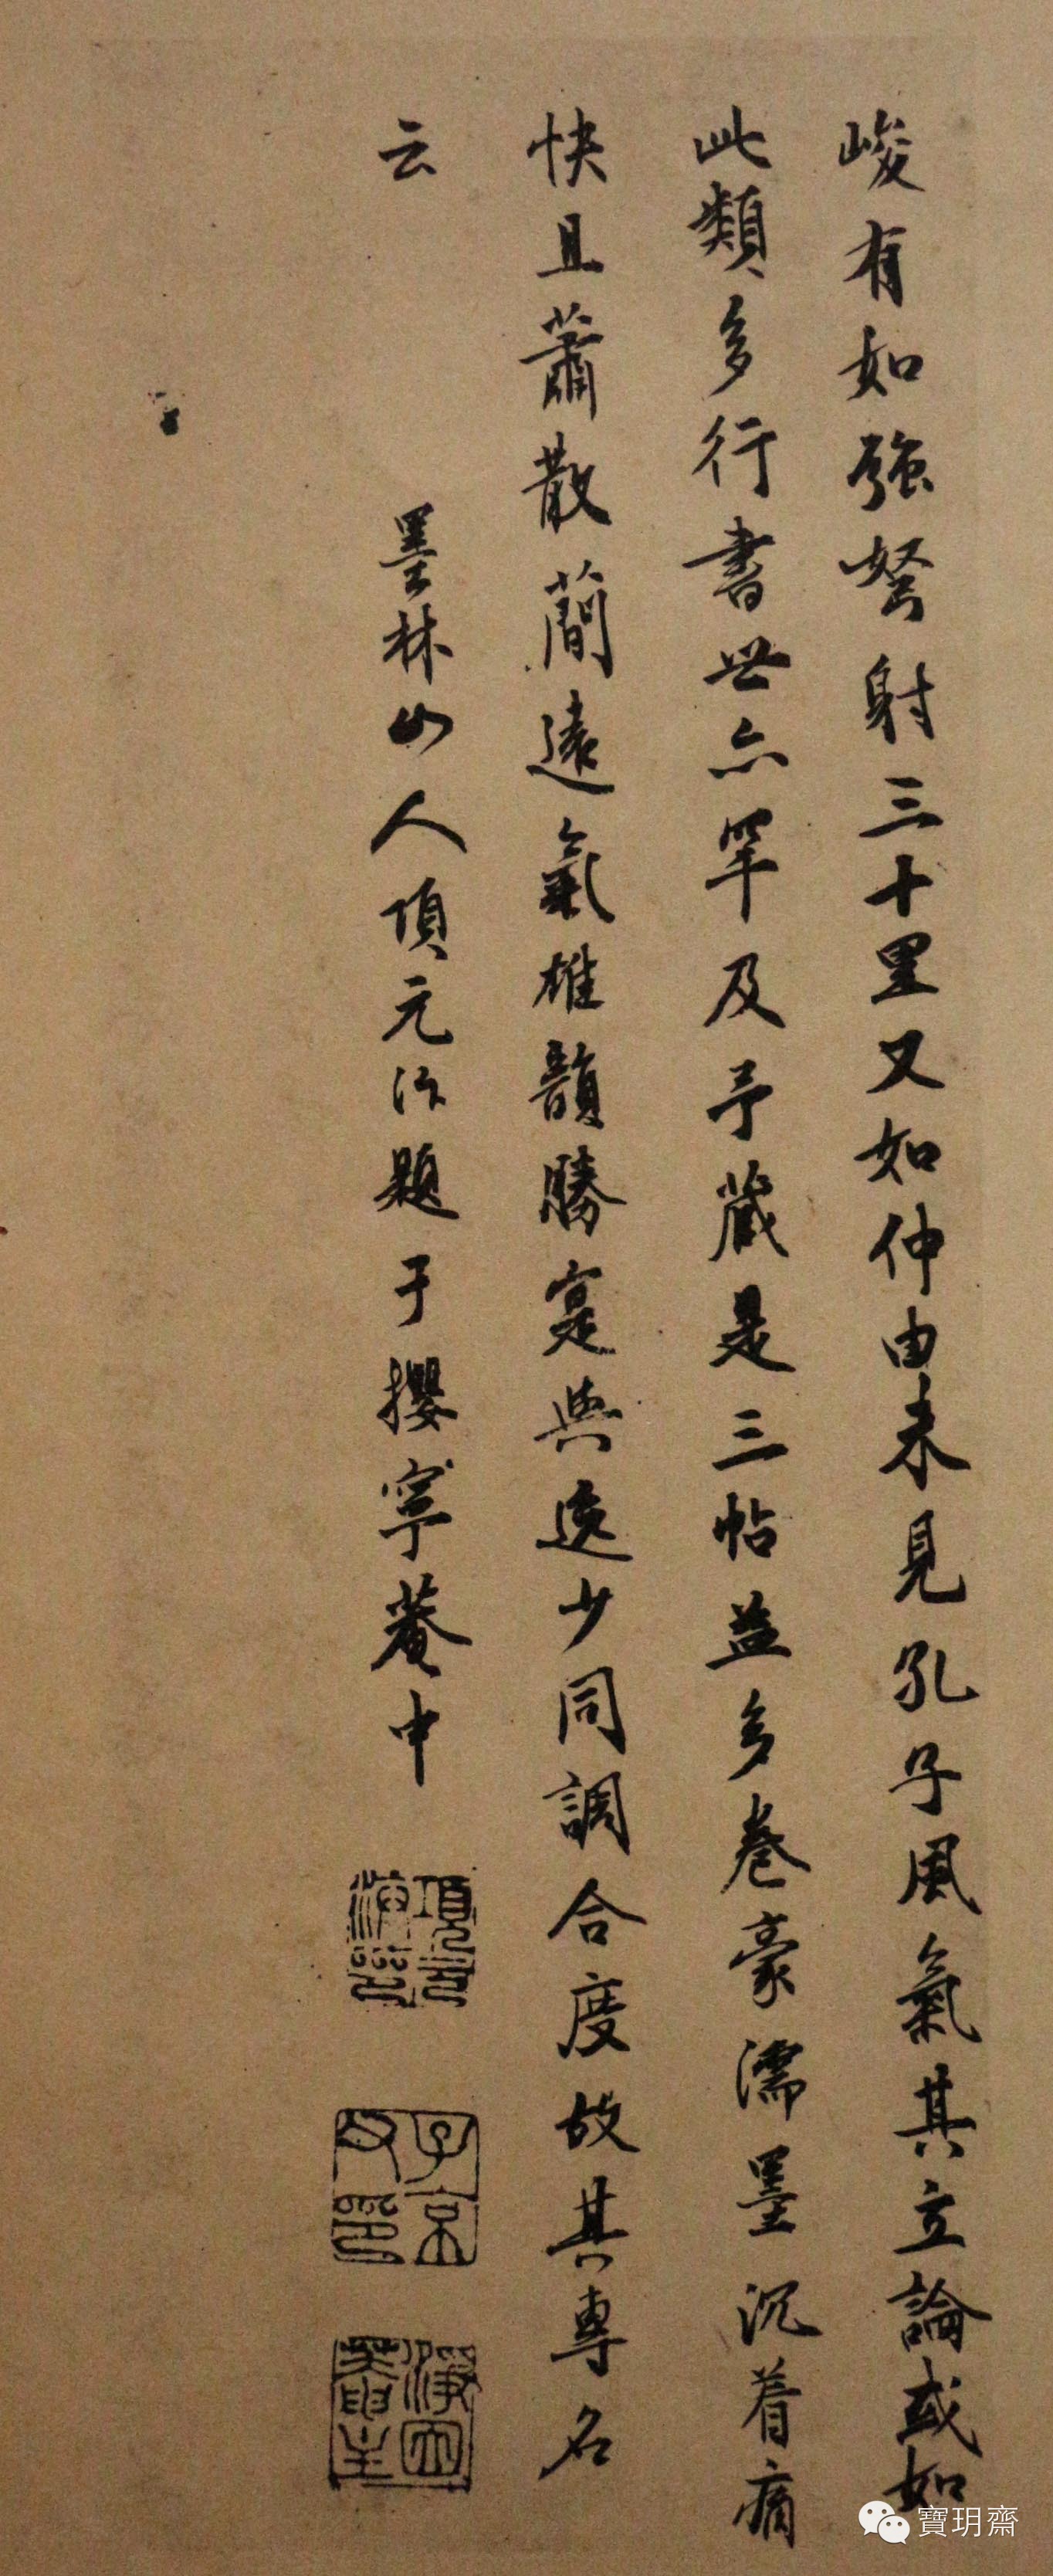 峻有如強弩射三十里又如仲由未見孔子風氣其立論或如
此類多行書世亦罕及予蔵是三帖益多卷豪濡墨沉着痛
快且蕭散蕳遠氣雄韻勝寔與逸少同調合度故其專名
云
墨林山人項元汴題于攖寧菴中
項元汴印
子京父印
淨因菴主
寶玥齋